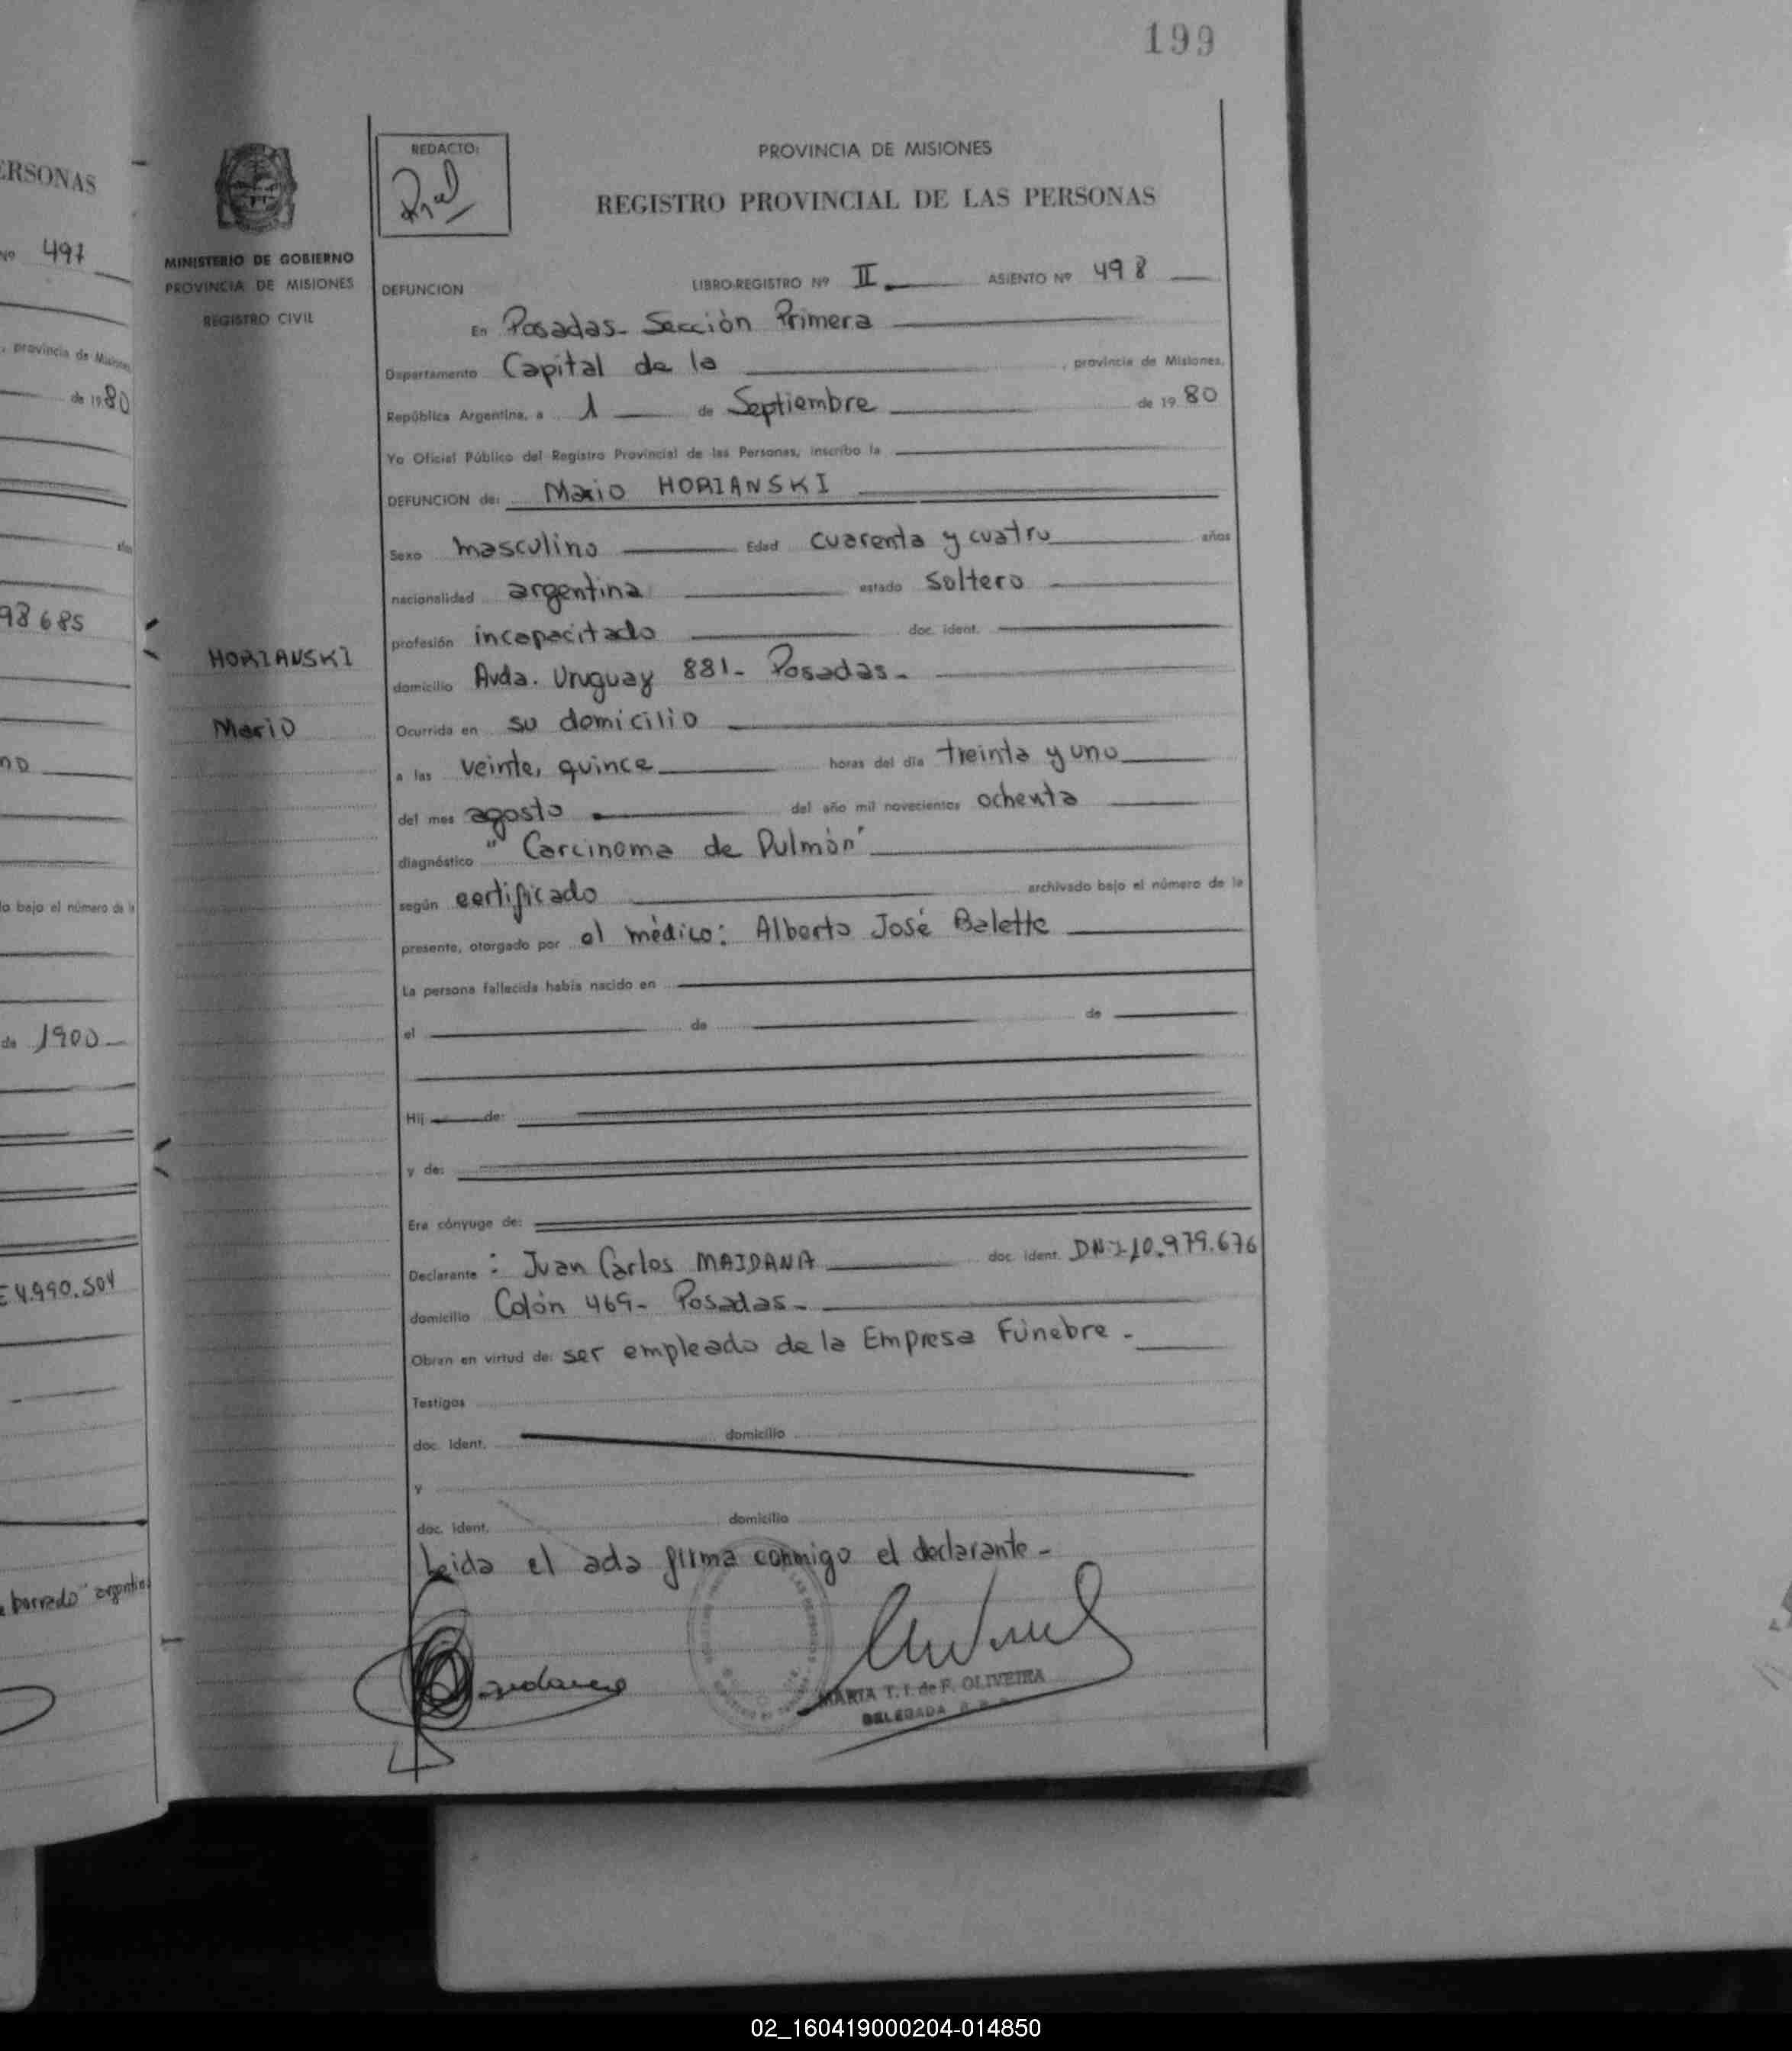 199
ERSONAS
Nº 497
, provincia de Misiones
de 1980
98685
lo bajo el número de la
de 1900
4.990.504
borrado" argentin
MINISTERIO DE GOBIERNO
PROVINCIA DE MISIONES
REGISTRO CIVIL
HORIANSKI
Mario
REDACTO:
PROVINCIA DE MISIONES
REGISTRO PROVINCIAL DE LAS PERSONAS
DEFUNCION LIBRO-REGISTRO Nº II. ASIENTO Nº 498
En Posadas- Sección Primera
Departamento Capital de la , provincia de Misiones.
República Argentina, a 1 de Septiembre de 1980
Yo Oficial Público del Registro Provincial de las Personas, inscribo la
DEFUNCION de: Mario HORIANSKI
Sexo masculino Edad cuarenta y cuatro años
nacionalidad argentina estado soltero
profesión incapacitado doc. ident.
domicilio Avda. Uruguay 881- Posadas-
Ocurrida en su domicilio
a las veinte, quince horas del día treinta y uno
del mes agosto del año mil novecientos ochenta
diagnóstico " Carcinoma de Pulmón"
según certificado archivado bajo el número de la
presente, otorgado por el médico: Alberto José Balette
La persona fallecida había nacido en
el de de
Hij de:
y de:
Era cónyuge de:
Declarante : Juan Carlos MAIDANA doc. ident. DNI 10.979.676
domicilio Colón 469- Posadas-
Obran en virtud de: ser empleado de la Empresa Fúnebre-
Testigos
doc. ident. domicilio
y
doc. ident. domicilio
Leida el acta firma conmigo el declarante-
MARIA T. I. de F. OLIVEIRA
DELEGADA
02_160419000204-014850